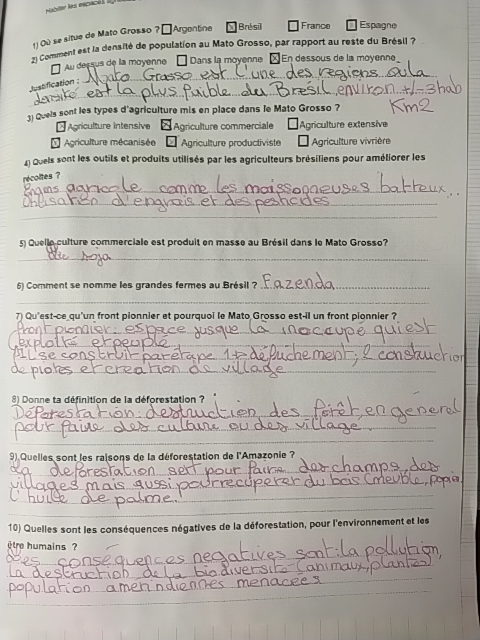 Habiter les espaces
1) Où se situe de Mato Grosso ? Argentine Brésil France Espagne
2) Comment est la densité de population au Mato Grosso, par rapport au reste du Brésil ?
Au dessus de la moyenne Dans la moyenne En dessous de la moyenne
Justification : Mato Grosso est l'une des regions ou la
densité est la plus faible du Brésil, environ +/- 3 hab
Km2
3) Quels sont les types d'agriculture mis en place dans le Mato Grosso ?
Agriculture intensive Agriculture commerciale Agriculture extensive
Agriculture mécanisée Agriculture productiviste Agriculture vivrière
4) Quels sont les outils et produits utilisés par les agriculteurs brésiliens pour améliorer les
récoltes ?
Engins agricole comme les moissonneuses batteux...
Utilisation d'engrais et des pesticides
5) Quelle culture commerciale est produit en masse au Brésil dans le Mato Grosso?
du soja
6) Comment se nomme les grandes fermes au Brésil ? Fazenda
7) Qu'est-ce qu'un front pionnier et pourquoi le Mato Grosso est-il un front pionnier ?
front pionnier: espace jusque la inoccupé qui est
exploité et peuplé
Il se construit par étape 1 défrichement; 2 construction
de pistes et creation de village
8) Donne ta définition de la déforestation ?
Déforestation: destruction des forêt, en general
pour faire des culture ou des village.
9) Quelles sont les raisons de la déforestation de l'Amazonie ?
La deforestation sert pour faire des champs, des
villages mais aussi pour recuperer du bois (meuble, papier)
l'huile de palme.
10) Quelles sont les conséquences négatives de la déforestation, pour l'environnement et les
être humains ?
Les conséquences negatives sont: la pollution,
la destruction de la biodiversité (animaux, plantes)
population amerindiennes menacées